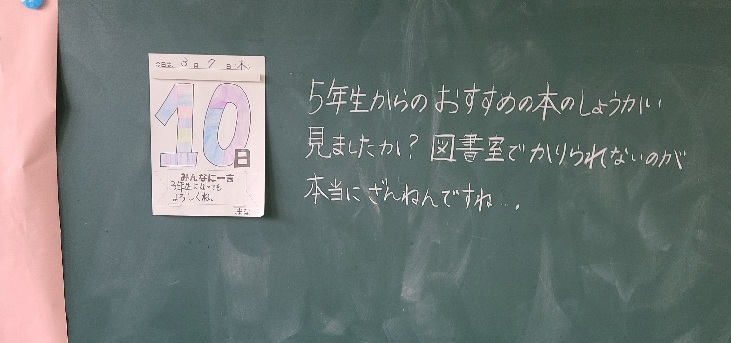 今日は 3月 7日 木
10日
みんなに一言
3年生になっても
よろしくね。
5年生からのおすすめの本のしょうかい
見ましたか？図書室でかりられないのが
本当にざんねんですね…。